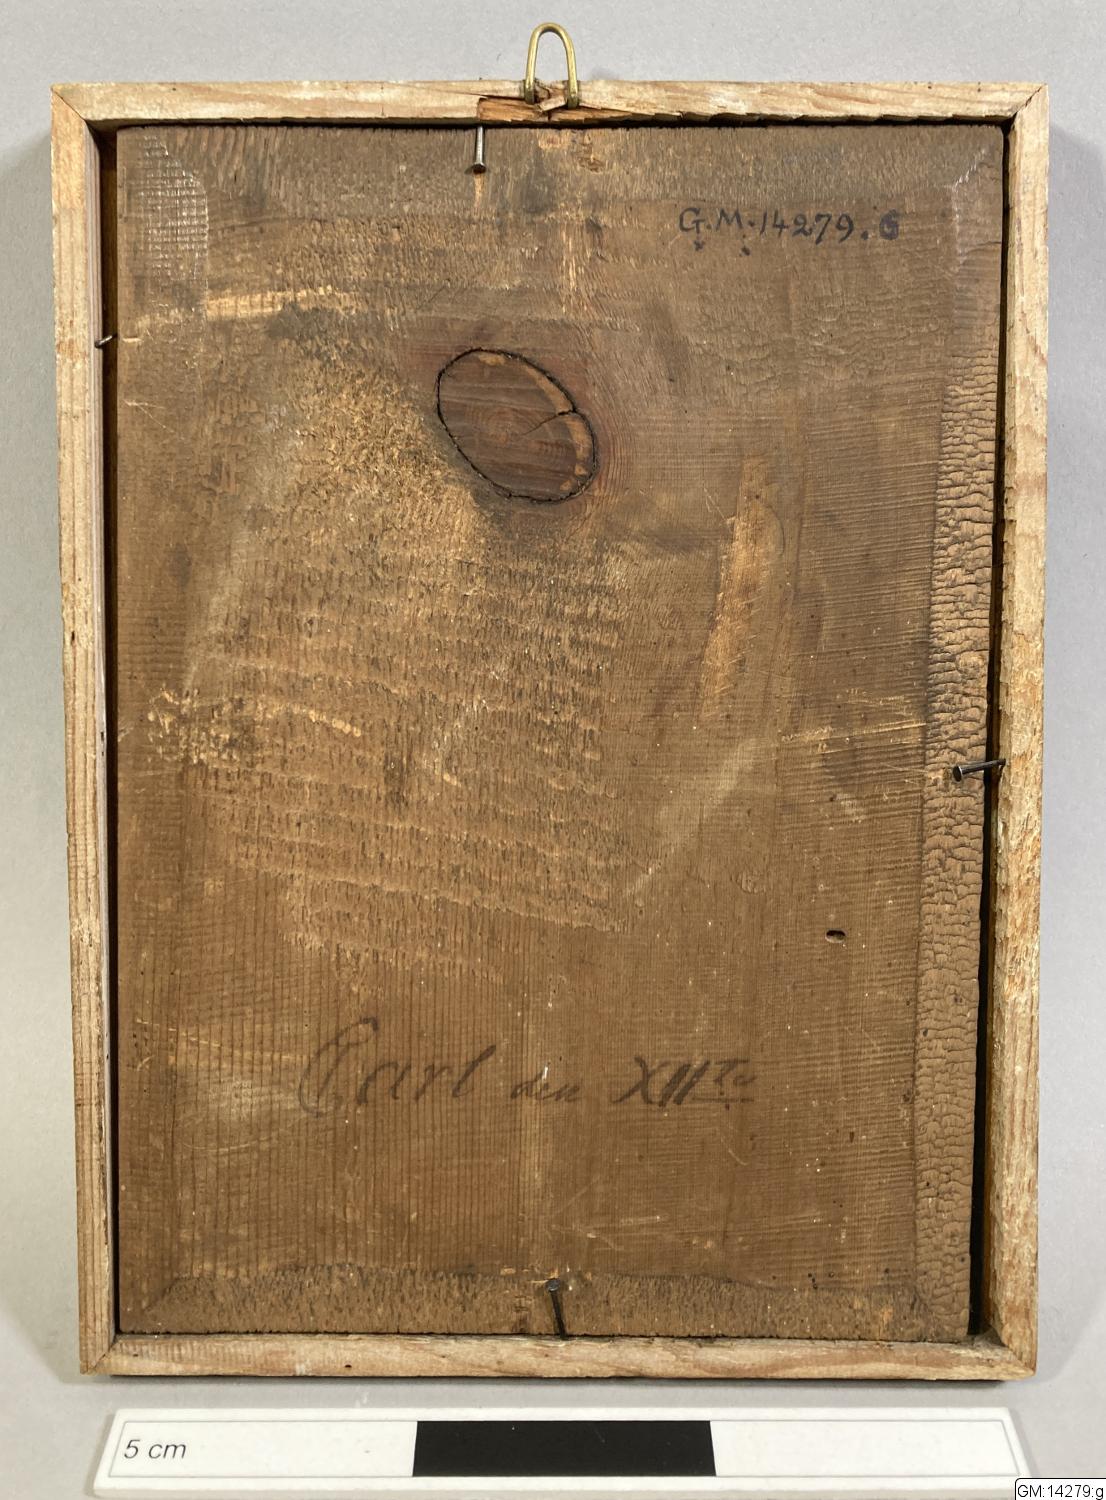 G.M.14279.6
Carl den XIIte
5 cm
GM:14279:g